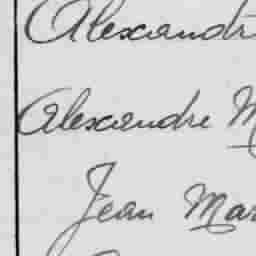 Alexandr
Alexandre M
Jean Mar